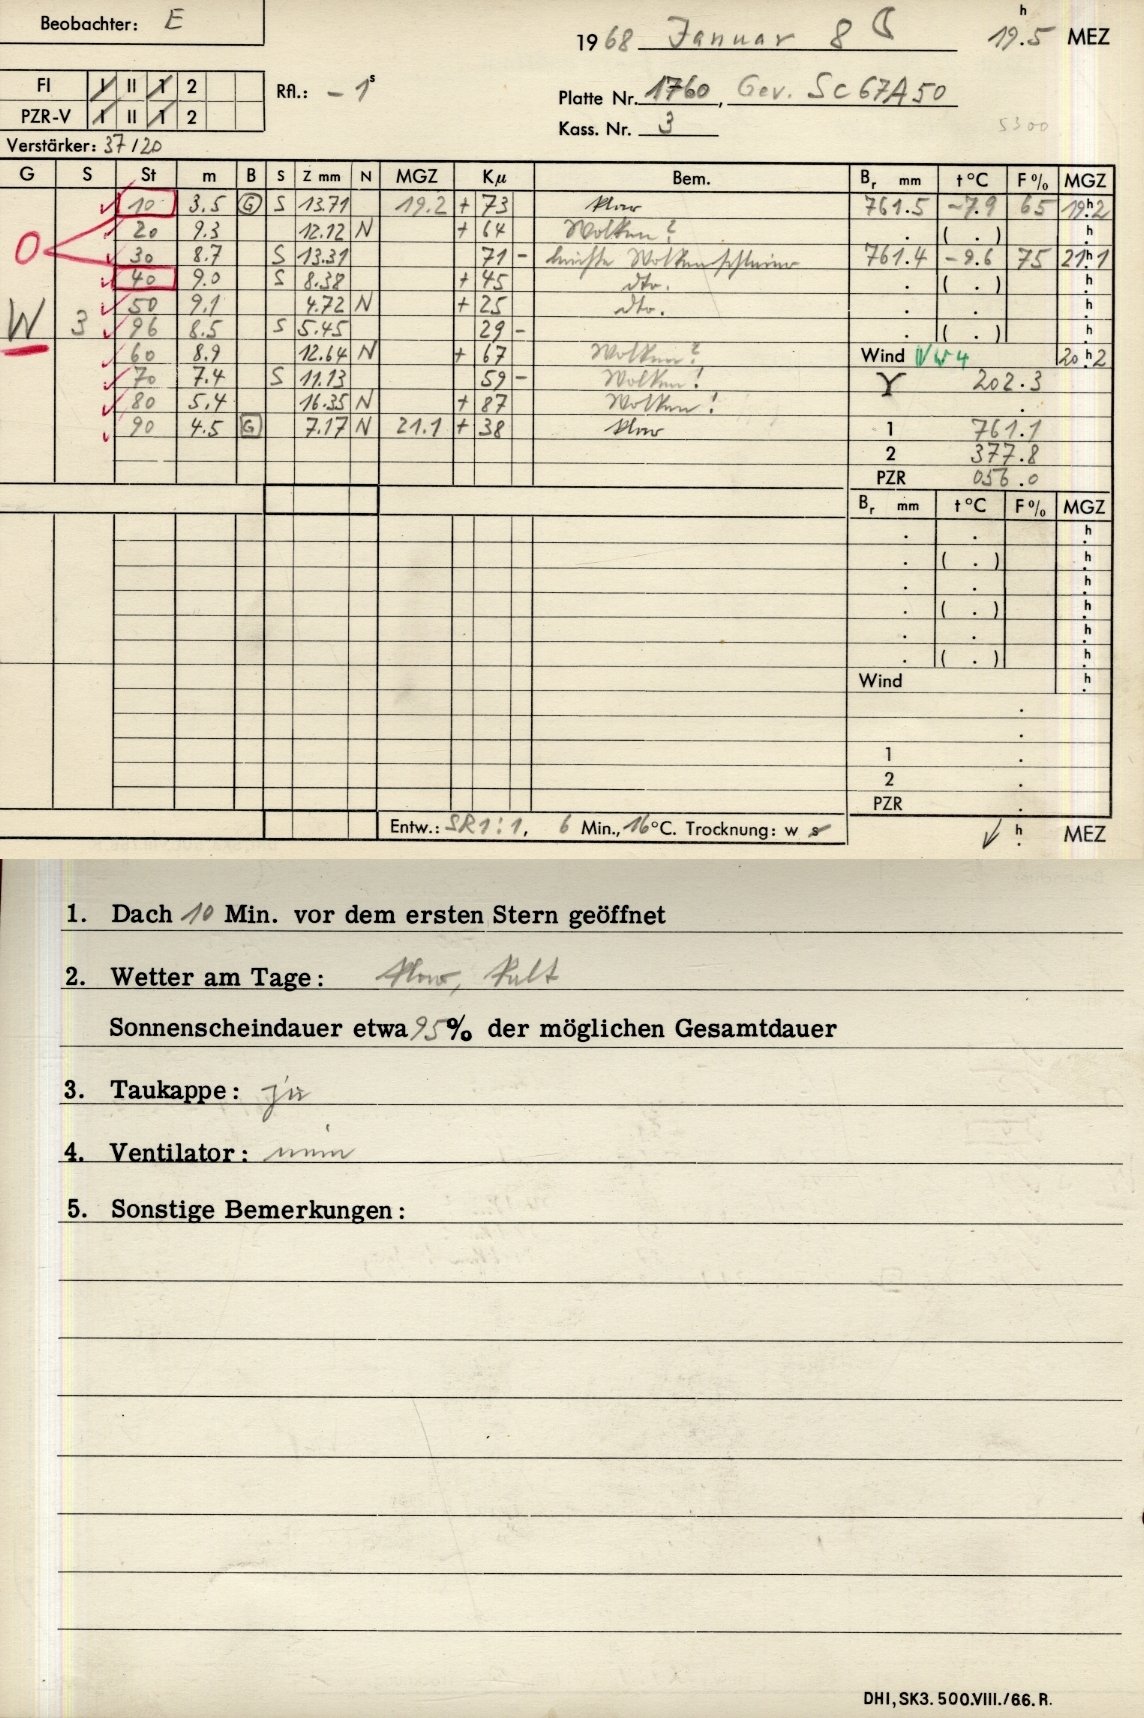 Beobachter: E
1968 Januar 8 19h.5 MEZ
FI I II 1 2
PZR-V I II 1 2
Rfl.: -1s
Platte Nr. 1760, Gev. Sc67A50
Kass. Nr. 3
5300
Verstärker: 37/20
G S St m B S Z mm N MGZ Kμ Bem. Br mm t°C F% MGZ
10 3.5 G S 13.71 19.2 + 73 klar 761.5 -7.9 65 19h.2
20 9.3 12.12 N + 64 Wolken? . ( . ) h.
O 30 8.7 S 13.31 71 - leichte Wolkenschleier 761.4 -9.6 75 21h.1
40 9.0 S 8.38 + 45 dto. . ( . ) h.
50 9.1 4.72 N + 25 dto. . . h.
W 3 96 8.5 S 5.45 29 - . ( . ) h.
60 8.9 12.64 N + 67 Wolken? Wind NW 4 20h.2
70 7.4 S 11.13 59 - Wolken! ♈ 202.3
80 5.4 16.35 N + 87 Wolken! .
90 4.5 G 7.17 N 21.1 + 38 klar 1 761.1
2 377.8
PZR 056.0
Br mm t°C F% MGZ
. . h.
. ( . ) h.
. . h.
. ( . ) h.
. . h.
. ( . ) h.
Wind h.
.
.
1 .
2 .
PZR .
Entw.: SR1:1, 6 Min., 16°C. Trocknung: w s
h. MEZ
1. Dach 10 Min. vor dem ersten Stern geöffnet
2. Wetter am Tage: klar, kalt
Sonnenscheindauer etwa 95% der möglichen Gesamtdauer
3. Taukappe: ja
4. Ventilator: nein
5. Sonstige Bemerkungen:
DHI, SK3. 500.VIII./66. R.